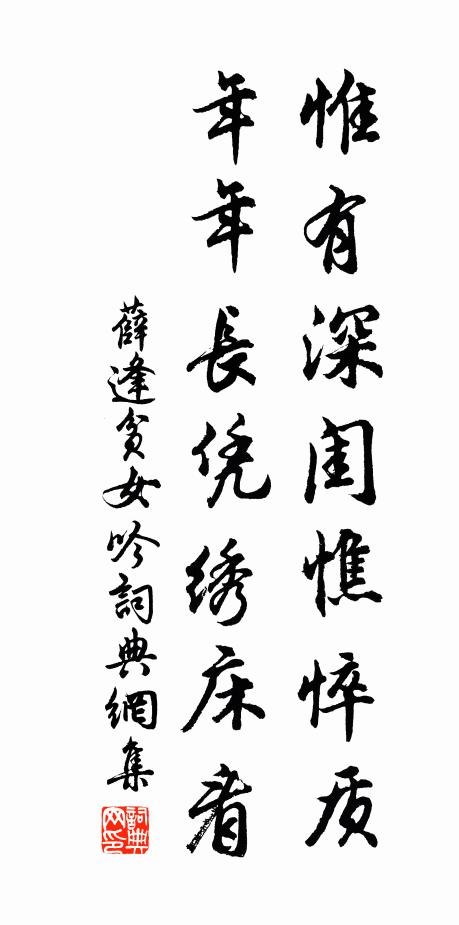 惟有深闺憔悴质
年年長凭绣床看
薛逢貧女吟詞典網集
詞典
网印